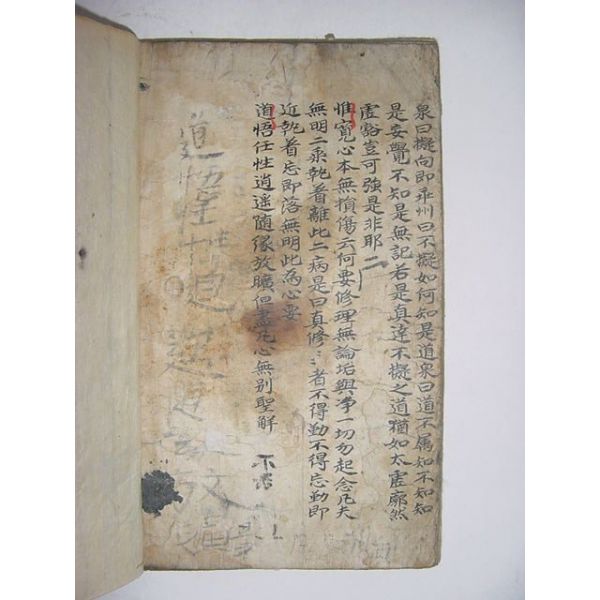 泉曰擬向即乖州曰不擬如何知是道泉曰道不属知不知知
是妄覺不知是無記若是真達不擬之道猶如太虛廓然
虛豁豈可強是非耶 二
惟寬心本無損傷云何要修理無論垢與净一切勿起念凡夫
無明二乘執着離此二病是曰真修〻者不得勤不得忘勤即
近執着忘即落無明此為心要
道悟任性逍遥隨緣放曠但盡凡心無别聖解
道悟任性逍遥